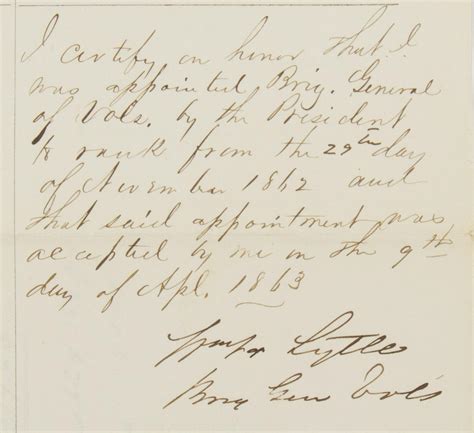 I certify on honor that I
was appointed Brig. General
of Vols. by the President
to rank from the 29th day
of November 1862 and
that said appointment was
accepted by me on the 9th
day of Apl. 1863
Lytle
Brig Gen Vols